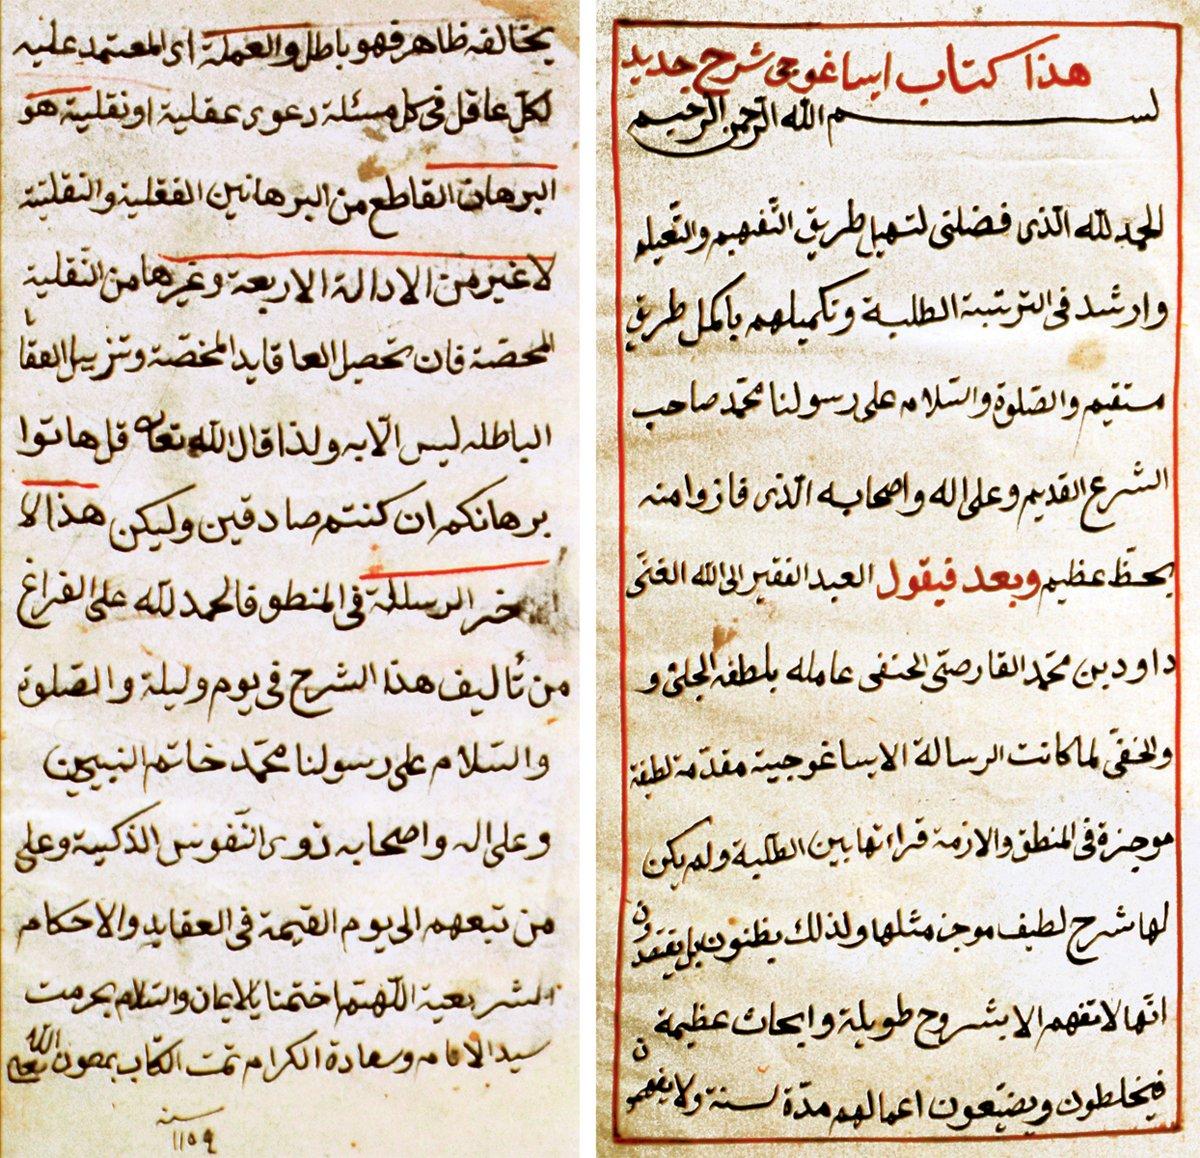 هذا كتاب ايساغوجى شرح جديد
بسم الله الرحمن الرحيم
الحمد لله الذى فضلنى لتسهيل طريق التفهيم والتعليم
وارشد فى الترتبة الطلبة وتكميلهم باكمل طريق
مستقيم والصلوة والسلام على رسولنا محمد صاحب
الشرع القديم وعلى اله واصحابه الذى فازوا منه
بحظ عظيم وبعد فيقول العبد الفقير الى الله الغنى
داود بن محمد القارصى الحنفى عامله بلطفه الجلى و
والخفى لما كانت الرسالة الايساغوجية مقدمة لطيفة
موجزة فى المنطق والازمة قراءتها بين الطلبة ولم يكن
لها شرح لطيف موجز مثلها ولذلك يظنون بل يعتقدون
انها لا تفهم الا بشروح طويلة وابحاث عظيمة
فيخلطون ويضيعون اعمالهم مدة سنة ولا يفهمون
يخالفه ظاهر فهو باطل والعملة اى المعتمد عليه
لكل عاقل فى كل مسئلة دعوى عقلية او نقلية هو
البرهان القاطع من البرهانين العقلية والنقلية
لا غير من الادالة الاربعة وغيرها من النقلية
المحضة فان تحصيل العاقايد المخصة وتزييل العقا
الباطله ليس الا به ولذا قال الله تعالى قل هاتوا
برهانكم ان كنتم صادقين وليكن هذا الا
خر الرسالة فى المنطق فالحمد لله على الفراغ
من تأليف هذا الشرح فى يوم وليلة والصلوة
والسلام على رسولنا محمد خاتم النبيين
وعلى اله واصحابه ذوى النفوس الذكية وعلى
من تبعهم الى يوم القيمة فى العقايد والاحكام
الشريعية اللهم اختمنا بالايمان والسلام بحرمت
سيد الانام وسعادة الكرام تمت الكتاب بعون الله تعالى
سنه
١١٥٩